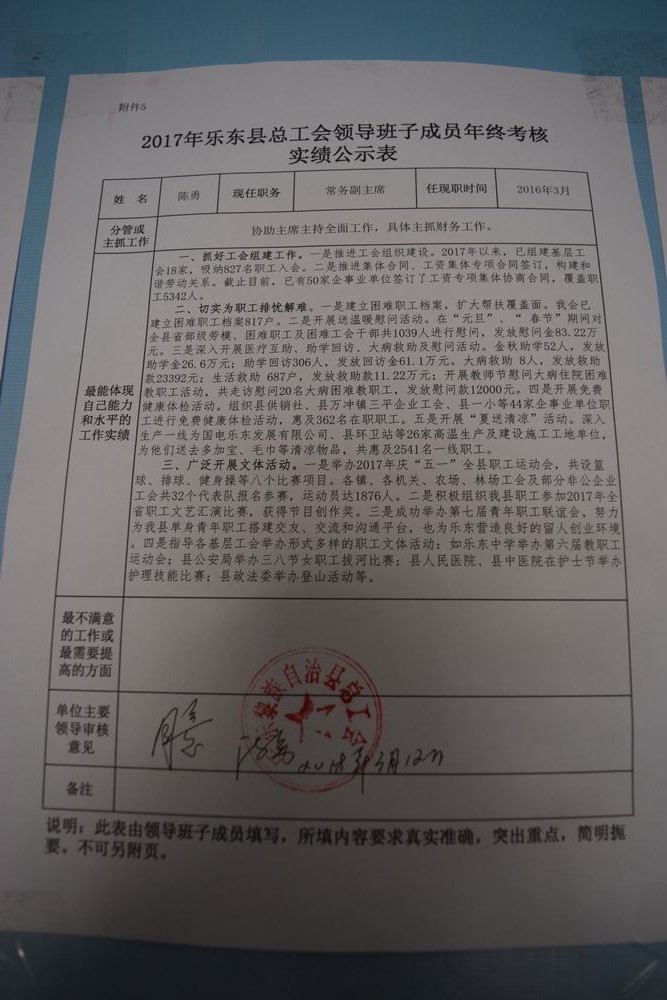 附件5
2017年乐东县总工会领导班子成员年终考核
实绩公示表
姓 名 陈勇 现任职务 常务副主席 任现职时间 2016年3月
分管或
主抓工作
协助主席主持全面工作，具体主抓财务工作。
最能体现
自己能力
和水平的
工作实绩
一、抓好工会组建工作。一是推进工会组织建设。2017年以来，已组建基层工
会18家，吸纳827名职工入会。二是推进集体合同、工资集体专项合同签订，构建和
谐劳动关系。截止目前，已有50家企事业单位签订了工资专项集体协商合同，覆盖职
工5342人。
二、切实为职工排忧解难。一是建立困难职工档案，扩大帮扶覆盖面。我会已
建立困难职工档案817户。二是开展送温暖慰问活动。在“元旦”、“ 春节”期间对
全县省部级劳模、困难职工及困难工会干部共1039人进行慰问，发放慰问金83.22万
元。三是深入开展医疗互助、助学回访、大病救助及慰问活动。金秋助学52人，发放
助学金26.6万元；助学回访306人，发放回访金61.1万元。大病救助 8人，发放救助
款23392元；生活救助 687户，发放救助款11.22万元；开展教师节慰问大病住院困难
教职工活动，共走访慰问20名大病困难教职工，发放慰问款12000元。四是开展免费
健康体检活动。组织县供销社、县万冲镇三平企业工会、县一小等44家企事业单位职
工进行免费健康体检活动，惠及362名在职职工。五是开展“夏送清凉”活动。深入
生产一线为国电乐东发展有限公司、县环卫站等26家高温生产及建设施工工地单位，
为他们送去多加宝、毛巾等清凉物品，共惠及2541名一线职工。
三、广泛开展文体活动。一是举办2017年庆“五一”全县职工运动会，共设篮
球、排球、健身操等八个比赛项目。各镇、各机关、农场、林场工会及部分非公企业
工会共32个代表队报名参赛，运动员达1876人。二是积极组织我县职工参加2017年全
省职工文艺汇演比赛，获得节目创作奖。三是成功举办第七届青年职工联谊会，努力
为我县单身青年职工搭建交友、交流和沟通平台，也为乐东营造良好的留人创业环境
。四是指导各基层工会举办形式多样的职工文体活动；如乐东中学举办第六届教职工
运动会；县公安局举办三八节女职工拔河比赛；县人民医院、县中医院在护士节举办
护理技能比赛；县政法委举办登山活动等。
最不满意
的工作或
最需要提
高的方面
单位主要
领导审核
意见
黎族自治县总工会
2018年3月12日
备注
说明：此表由领导班子成员填写，所填内容要求真实准确，突出重点，简明扼
要。不可另附页。